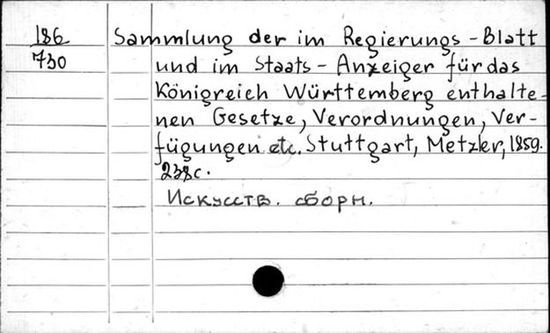 186 Sammlung der im Regierungs-Blatt
730 und im Staats-Anzeiger für das
Königreich Württemberg enthalte-
nen Gesetze, Verordnungen, Ver-
fügungen etc. Stuttgart, Metzler, 1859.
238 с.
Искусств. сборн.